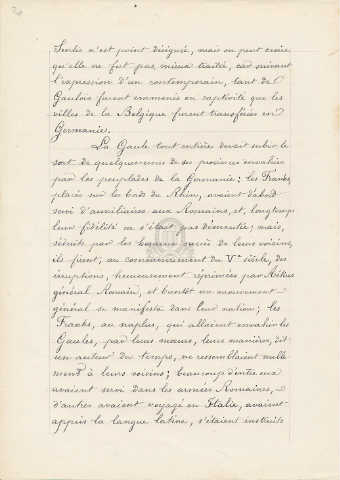 Senlis n'est point désignée, mais on peut croire
qu'elle ne fut pas mieux traitée, car suivant
l'expression d'un contemporain, tant de
Gaulois furent emmenés en captivité que les
villes de la Belgique furent transférées en
Germanie.
La Gaule tout entière devait subir le
sort de quelques-unes de ses provinces envahies
par les peuplades de la Germanie ; les Francks,
placés sur les bords du Rhin, avaient d'abord
servi d'auxiliaires aux Romains, et, longtemps
leur fidélité ne s'était pas démentie ; mais,
séduits par les heureux succès de leurs voisins,
ils firent, au commencement du Ve siècle, des
irruptions, heureusement réprimées par Aétius
général Romain, et bientôt un mouvement
général se manifesta dans leur nation ; les
Francks, au surplus, qui allaient envahir les
Gaules, par leurs mœurs, leurs manières, dit
un auteur du temps, ne ressemblaient nulle
ment à leurs voisins ; beaucoup d'entre eux
avaient servi dans les armées Romaines,
d'autres avaient voyagé en Italie, avaient
appris la langue latine, s'étaient instruits